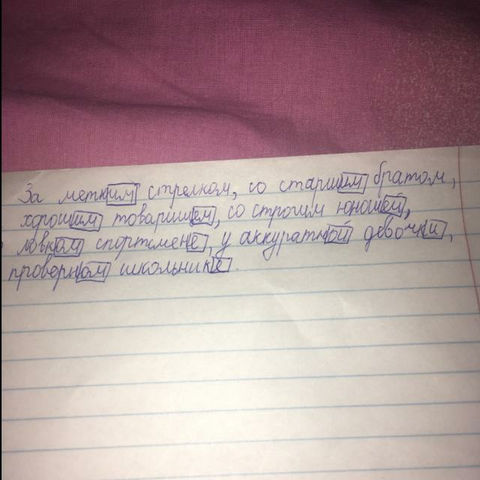 За метким стрелком, со старшим братом,
хорошим товарищем, со строгим юношей,
ловком спортсмене, у аккуратной девочки,
проворном школьнике.